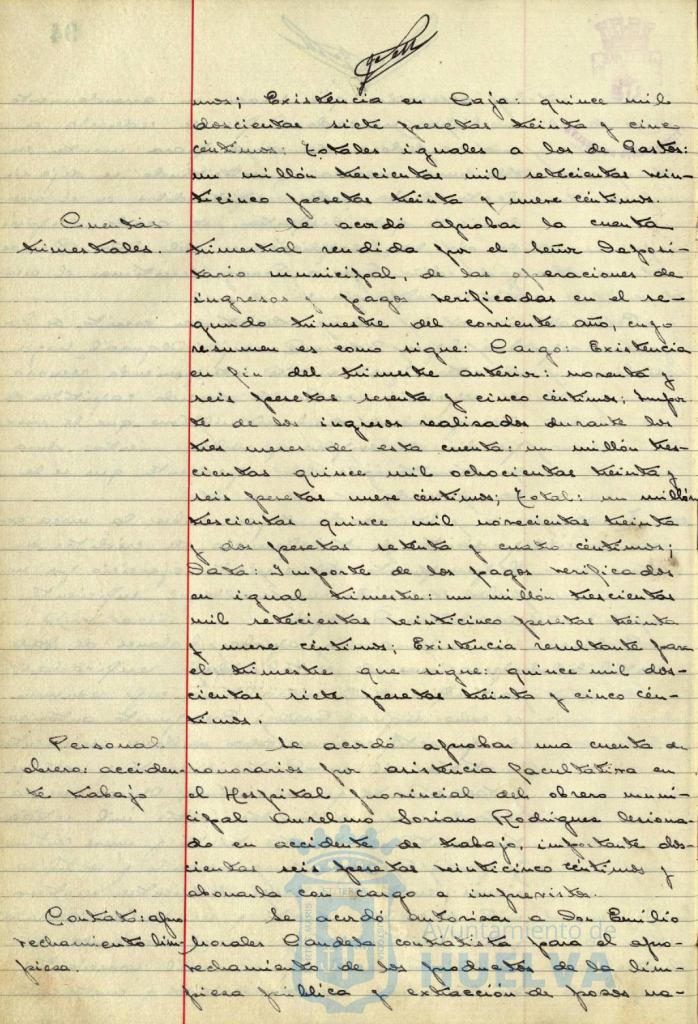 mos; Existencia en Caja: quince mil
doscientas siete pesetas treinta y cinco
céntimos; Totales iguales a los de Gastos:
un millón trescientas mil setecientas vein-
ticinco pesetas treinta y nueve céntimos.
Cuentas
trimestrales.
Se acordó aprobar la cuenta
trimestral rendida por el Señor Deposi-
tario municipal, de las operaciones de
ingresos y pagos verificadas en el se-
gundo trimestre del corriente año, cuyo
resumen es como sigue: Cargo: Existencia
en fin del trimestre anterior: noventa y
seis pesetas sesenta y cinco céntimos; Impor-
te de los ingresos realizados durante los
tres meses de esta cuenta: un millón tres-
cientas quince mil ochocientas treinta y
seis pesetas nueve céntimos; Total: un millón
trescientas quince mil novecientas treinta
y dos pesetas setenta y cuatro céntimos;
Data: Importe de los pagos verificados
en igual trimestre: un millón trescientas
mil setecientas veinticinco pesetas treinta
y nueve céntimos; Existencia resultante para
el trimestre que sigue: quince mil dos-
cientas siete pesetas treinta y cinco cén-
timos.
Personal
obrero: acciden-
te trabajo
Se acordó aprobar una cuenta de
honorarios por asistencia facultativa en
el Hospital provincial del obrero muni-
cipal Anselmo Soriano Rodrigues lesiona-
do en accidente de trabajo, importante dos-
cientas seis pesetas veinticinco céntimos y
abonarla con cargo a imprevistos.
Contrato: apro
vechamiento lim-
pieza.
Se acordó autorizar a Don Emilio
Morales Candela contratista para el apro-
vechamiento de los productos de la lim-
pieza pública y extracción de pozos ne-
Ayuntamiento de
HUELVA